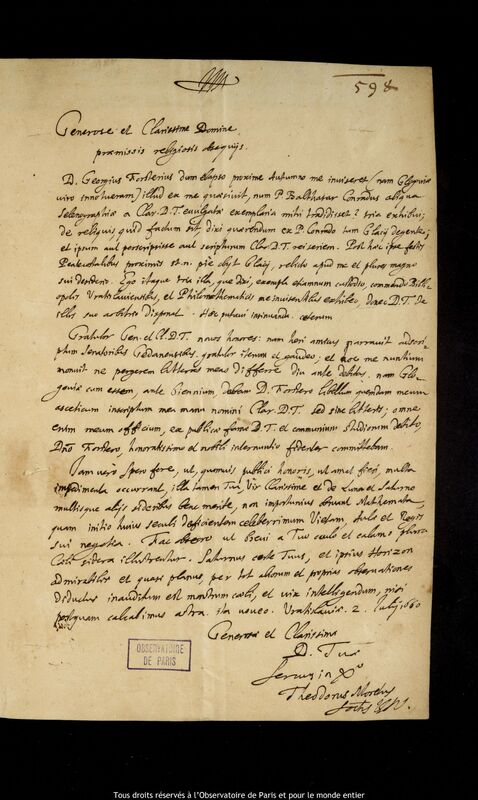 598
Generose et Clarissime Domine.
præmissis religiosis obsequijs.
D. Georgius Forsterius dum elapso proxime Autumno me inviseret (nam Glogoviæ
viro innotueram) illud ex me quæsivit, num P. Balthasar Conradus aliqua
Selenographiæ a Clar. D. T. evulgatæ exemplaria mihi tradidisset? tria exhibui;
de reliquis, quid factum sit, dixi quærendum ex P. Conrado tum Glacij degente;
et ipsum aut perscripsisse aut scripturum Clar. D. T. rei seriem. Post hæc ipse festis
Pentecostalibus proximis st. n. pie obijt Glacij, relicto apud me et plures magno
sui desiderio. Ego itaque tria illa, quæ dixi, exempla etiamnum custodio, commendo Biblio-
polis Vratislaviensibus, et Philomathematicis me invisentibus exhibeo, donec D. T. de
illis suo arbitrio disponat. Hæc putavi insinuanda. ceterum
Gratulor Gen. et Cl. D. T. novos honores: nam heri amicus narravit adscri-
ptum Senatoribus Gedanensibus. gratulor iterum et gaudeo; et hoc me nuntium
monuit ne pergerem litteras meas differre diu ante debitas. nam Glo-
goviæ cum essem, ante biennium, dabam D. Forstero libellum quendam meum
asceticum inscriptum mea manu nomini Clar. D. T. sed sine litteris; omne
enim meum officium, ex publica fama D. T. et communium studiorum debito,
Dno Forstero, honoratissimo et nobili internuntio fidenter committebam.
Iam vero spero fore, ut, quamvis publici honoris, ut amat fieri, multa
impedimenta occurrant, illa tamen Tua Vir Clarissime et de Luna et Saturno
multisque alijs sideribus bene merite, non importunius obruant Mathemata,
quam initio huius seculi deficientem celeberrimum Vietam, aulæ et Regis
sui negotia. Fac obsecro ut brevi a Tuo oculo et calamo plura
Cœli sidera illustrentur. Saturnus certe Tuus, et ipsius Horizon
admirabilis et quasi planus, per tot aliorum et proprias observationes
deductus inauditum est monstrum cœli, et vix intelligendum, nisi
postquam calcabimus astra. ita voveo. Vratislaviæ. 2. Julij 1660
Generosæ et Clarissimæ
D. Tuæ
Servus in Xo
Theodorus Moretus
Soctis Jesu.
OBSERVATOIRE
DE PARIS
Tous droits réservés à l'Observatoire de Paris et pour le monde entier